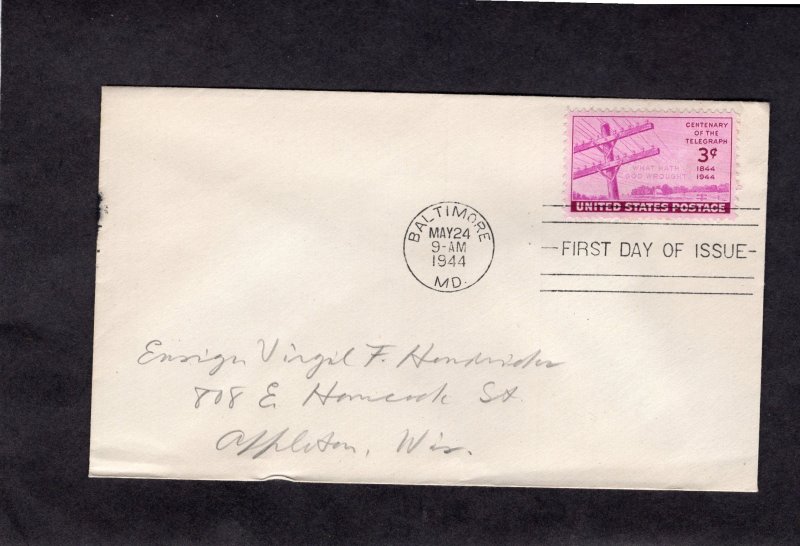 CENTENARY
OF THE
TELEGRAPH
3¢
WHAT HATH
GOD WROUGHT
1844
1944
UNITED STATES POSTAGE
BALTIMORE
MAY 24
9-AM
1944
MD.
FIRST DAY OF ISSUE
Ensign Virgil F. Hendricks
808 E. Hancock St.
Appleton, Wis.